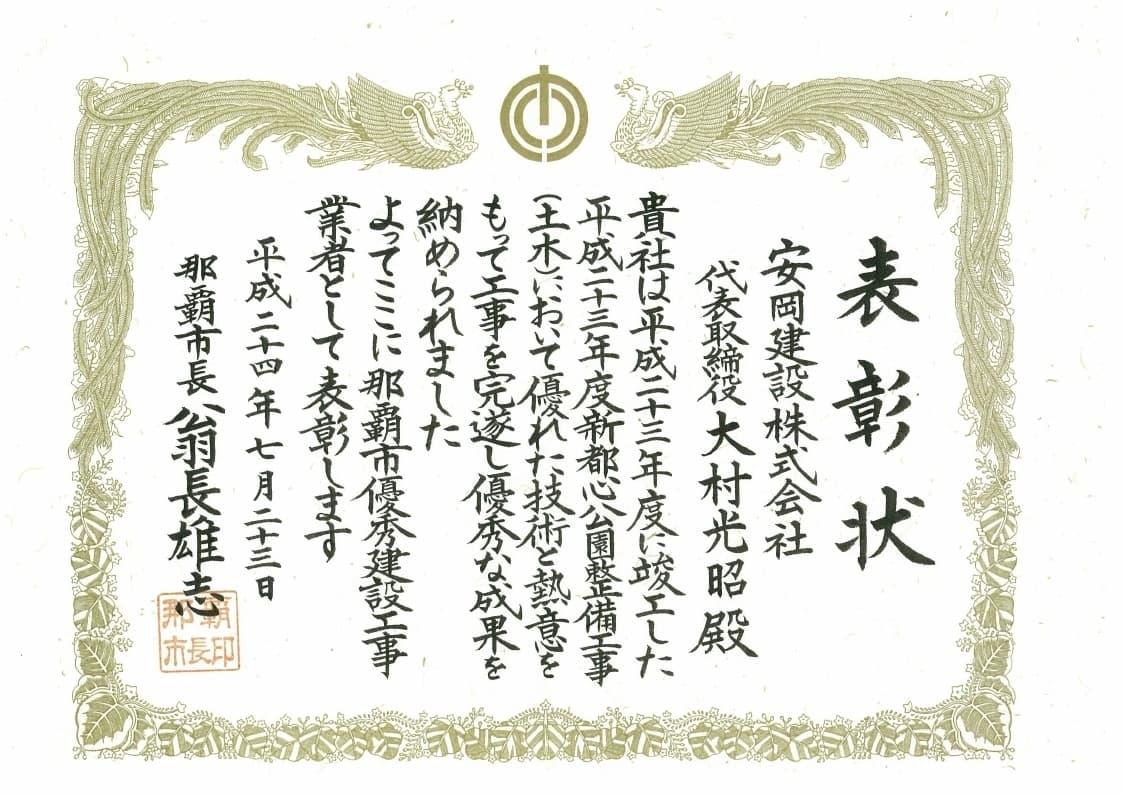 表彰状
安岡建設株式会社
代表取締役 大村光昭 殿
貴社は平成二十三年度に竣工した
平成二十三年度新都心公園整備工事
(土木)において優れた技術と熱意を
もって工事を完遂し優秀な成果を
納められました
よってここに那覇市優秀建設工事
業者として表彰します
平成二十四年七月二十三日
那覇市長 翁長雄志
那覇
市長印